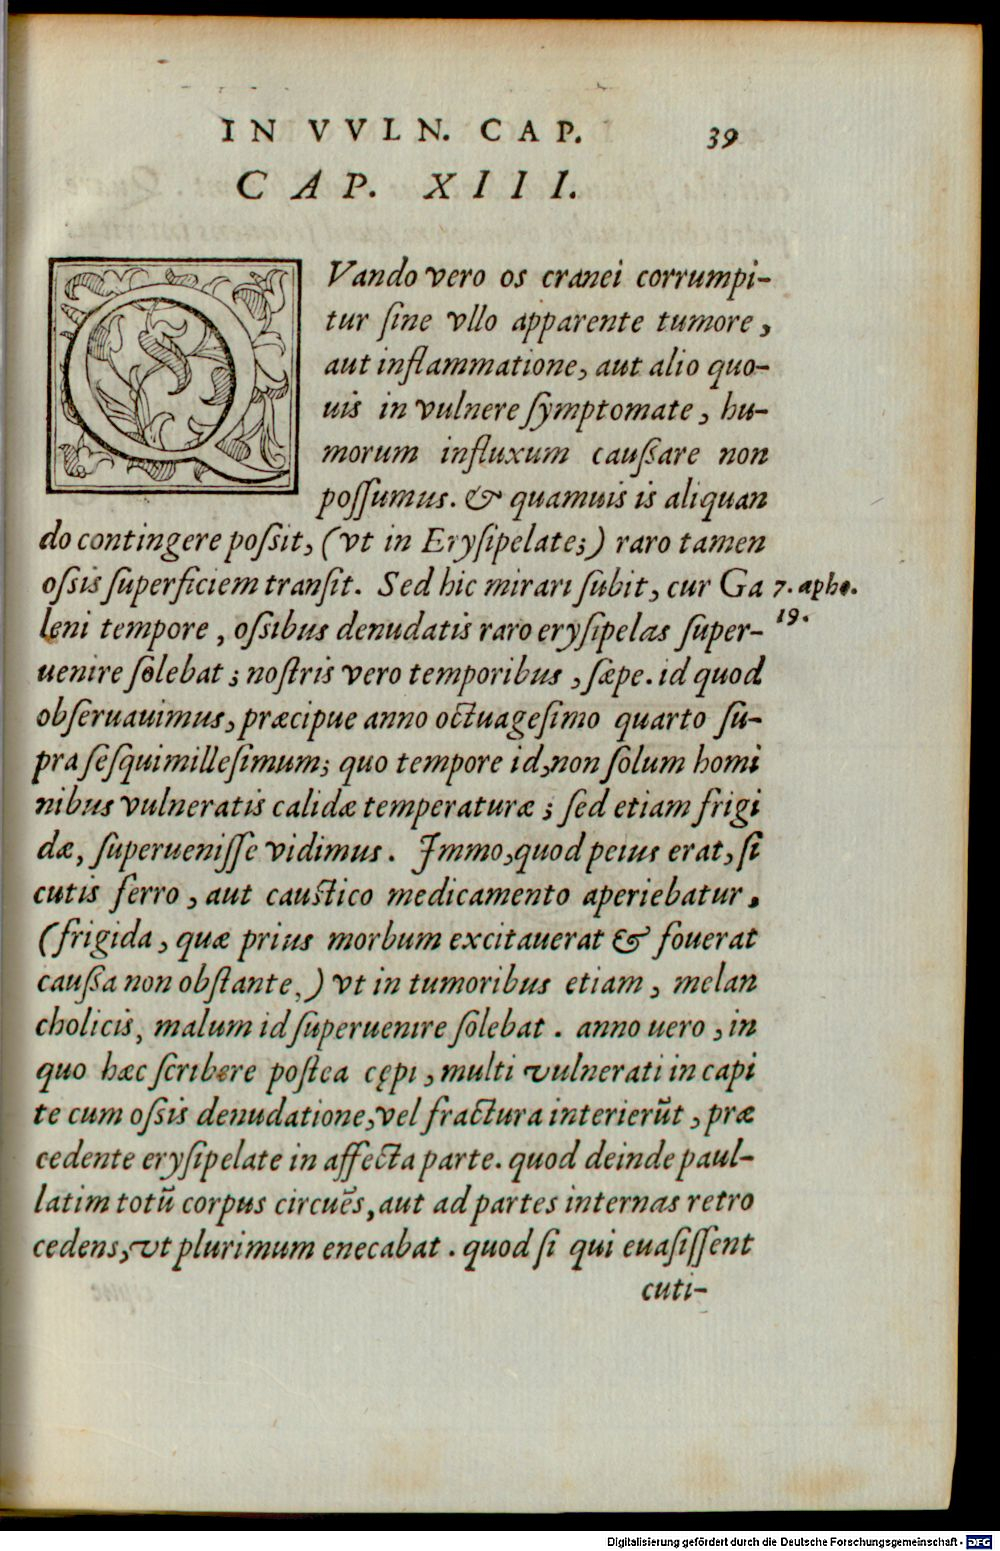 IN VVLN. CAP. 39
CAP. XIII.
QVando vero os cranei corrumpi-
tur ſine vllo apparente tumore,
aut inflammatione, aut alio quo-
uis in vulnere ſymptomate, hu-
morum influxum cauſſare non
poſſumus. & quamuis is aliquan
do contingere poſsit, (vt in Eryſipelate;) raro tamen
oſsis ſuperficiem tranſit. Sed hic mirari ſubit, cur Ga
7. apho.
19.
leni tempore, oſsibus denudatis raro eryſipelas ſuper-
uenire ſolebat; noſtris vero temporibus, ſæpe. id quod
obſeruauimus, præcipue anno octuageſimo quarto ſu-
pra ſeſquimilleſimum; quo tempore id, non ſolum homi
nibus vulneratis calidæ temperaturæ; ſed etiam frigi
dæ, ſuperueniſſe vidimus. Immo, quod peius erat, ſi
cutis ferro, aut cauſtico medicamento aperiebatur,
(frigida, quæ prius morbum excitauerat & fouerat
cauſſa non obſtante,) vt in tumoribus etiam, melan
cholicis, malum id ſuperuenire ſolebat. anno uero, in
quo hæc ſcribere poſtea cępi, multi vulnerati in capi
te cum oſsis denudatione, vel fractura interierūt, præ
cedente eryſipelate in affecta parte. quod deinde paul-
latim totū corpus circuēs, aut ad partes internas retro
cedens, vt plurimum enecabat. quod ſi qui euaſiſſent
cuti-
Digitalisierung gefördert durch die Deutsche Forschungsgemeinschaft - DFG